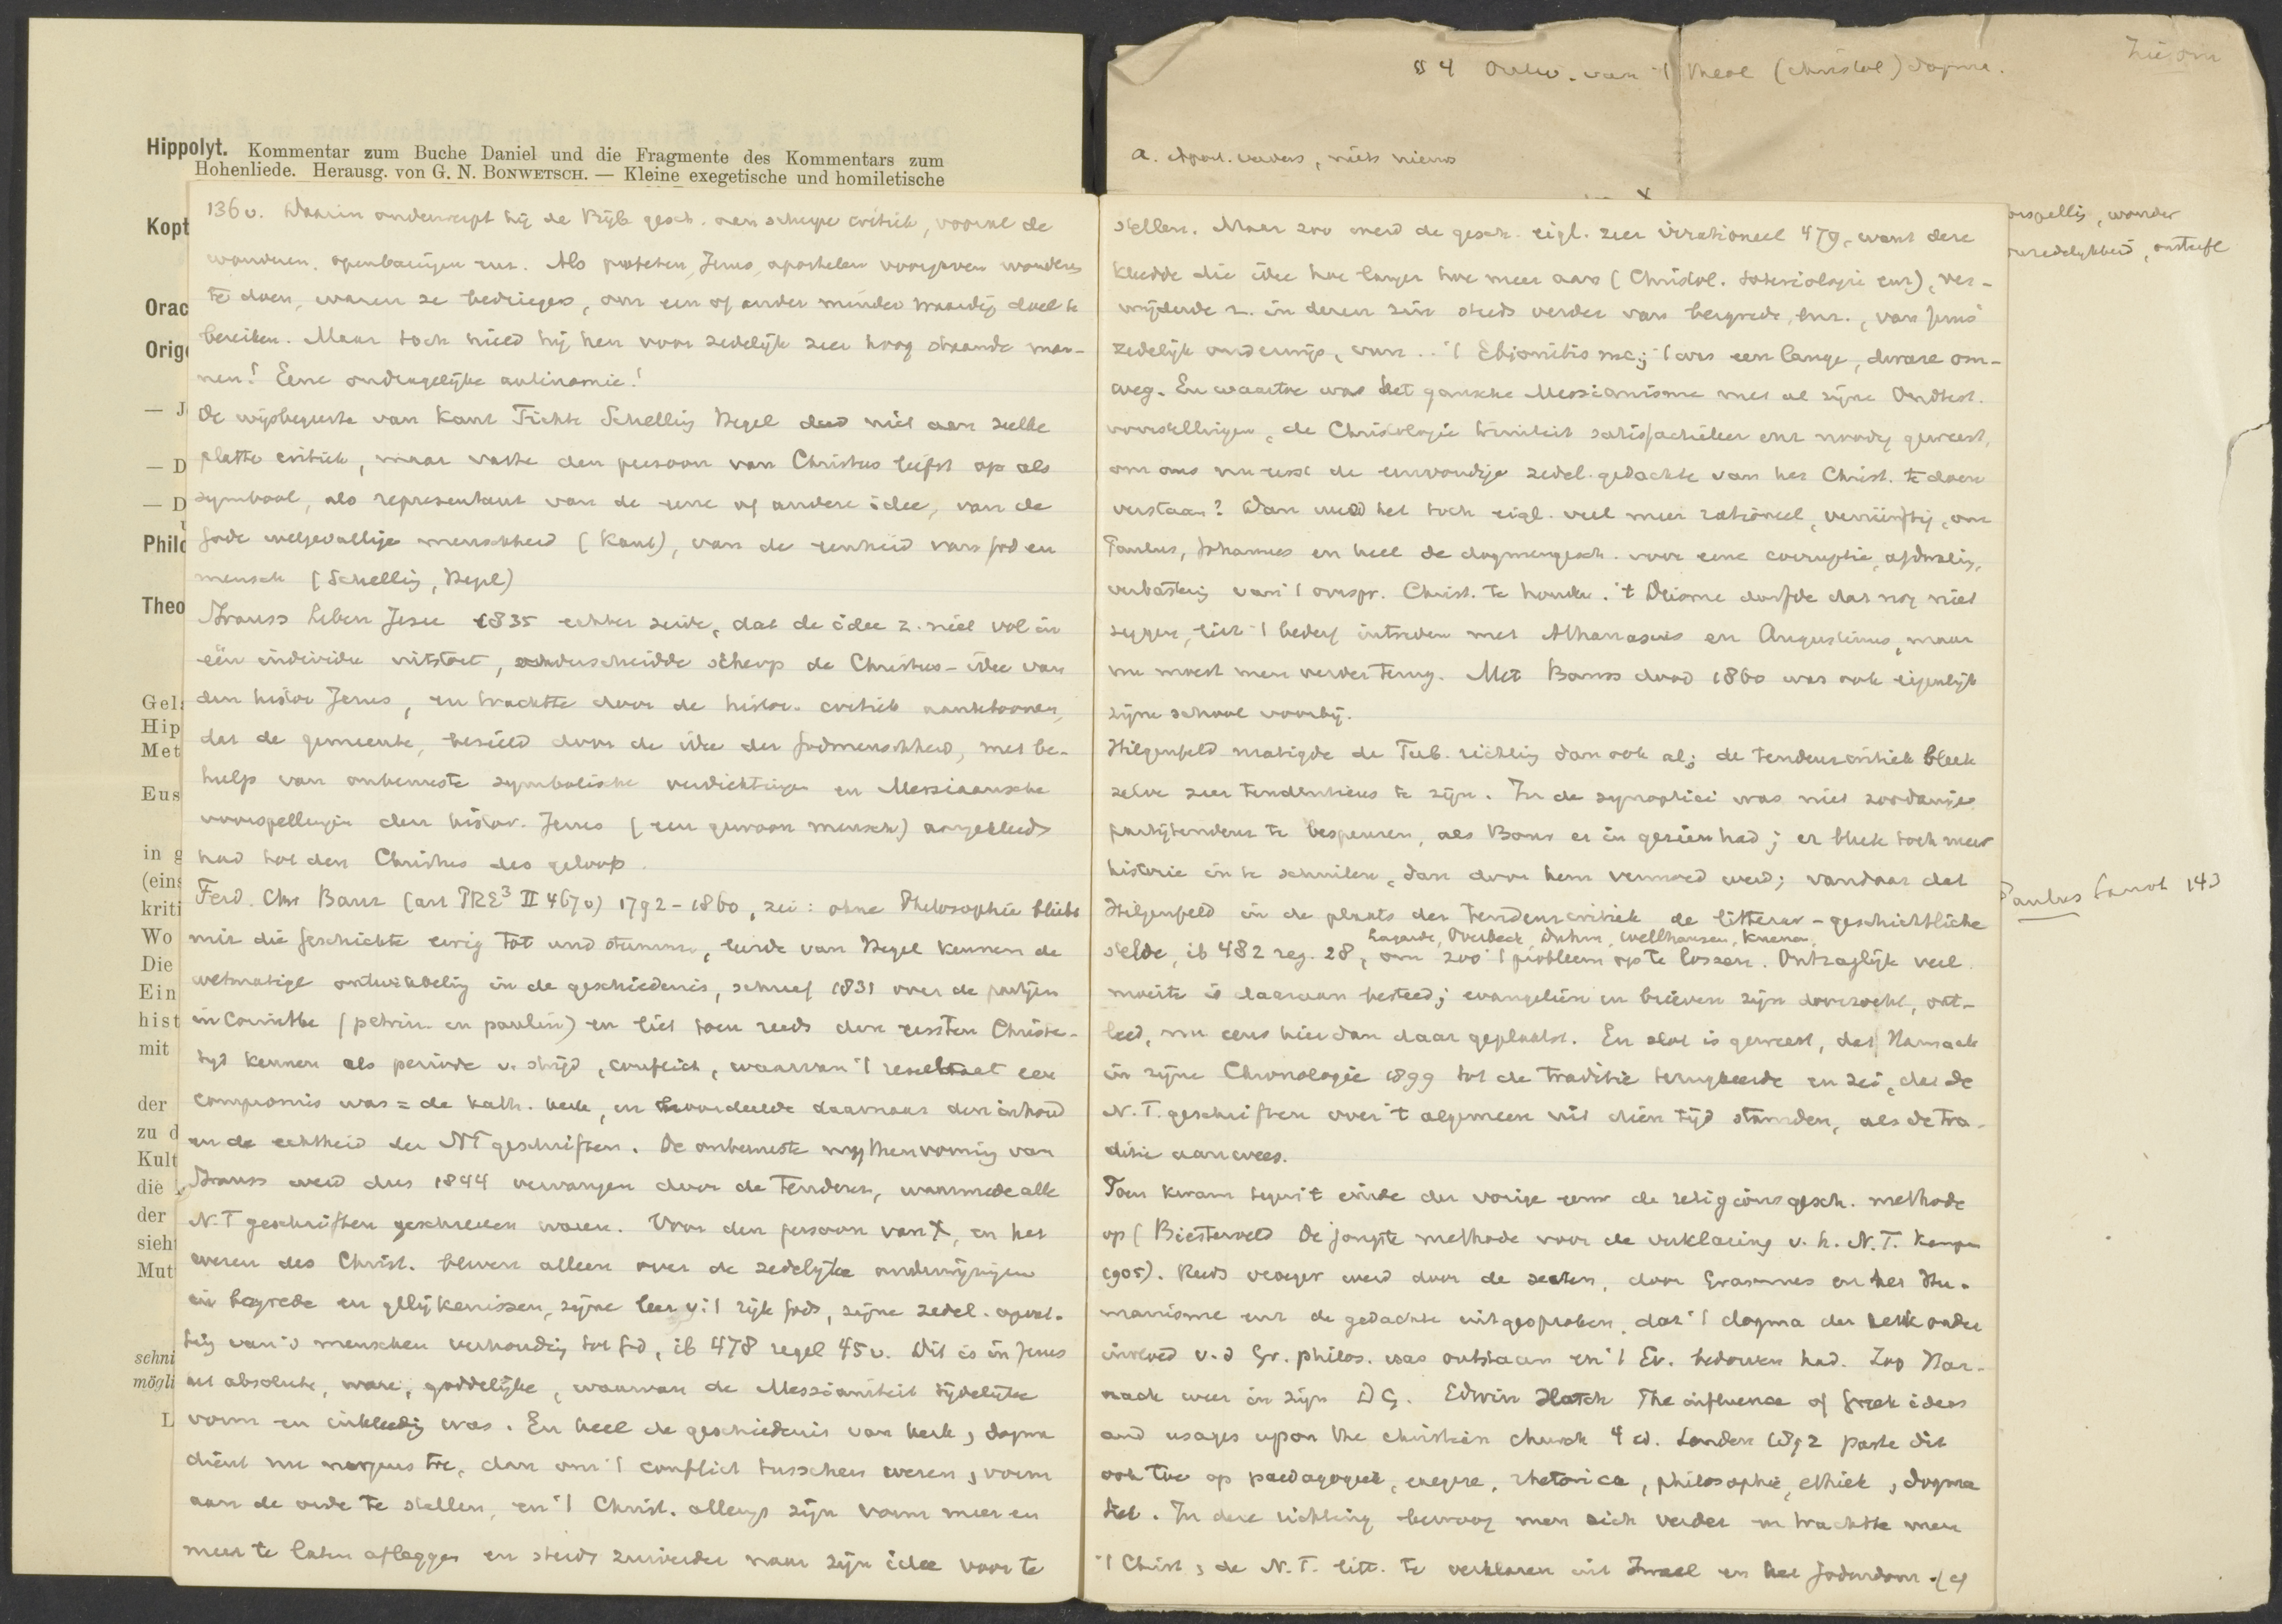 Hippolyt. Kommentar zum Buche Daniel und die Fragmente des Kommentars zum
Hohenliede. Herausg. von G. N. BONWETSCH. — Kleine exegetische und homiletische
Kopt
Orac
Orig
— J
— D
— D
Philo
Theo
Gel
Hip
Met
Eus
in g
(eins
kriti
Wo
Die
Ein
hist
mit
der
zu d
Kult
die
der
sieh
Mut
schni
mögli
L
136 v. Daarin onderwerpt hij de Bijb. gesch. aan scherpe critiek, vooral de
wonderen, openbaringen enz. Als profeten, Jezus, apostelen voorgaven wonderen
te doen, waren ze bedriegers, om een of ander minder waardig doel te
bereiken. Maar toch hield hij hen voor zedelijk zeer hoog staande man-
nen! Eene ondragelijke antinomie!
De wijsbegeerte van Kant Fichte Schelling Hegel deed niet aan zulke
platte critiek, maar vatte den persoon van Christus liefst op als
symbool, als representant van de eene of andere idee, van de
Gode welgevallige menschheid (Kant), van de eenheid van God en
mensch (Schelling, Hegel)
Strauss Leben Jesu 1835 echter zeide, dat de idee z. niet vol in
eén individu uitstort, onderscheidde scherp de Christus-idee van
den histor Jezus, en trachtte door de histor. critiek aantetoonen,
dat de gemeente, bezield door de idee der Godmenschheid, met be-
hulp van onbewuste symbolische verdichtingen en Messiaansche
voorspellingen den histor. Jezus (een gewoon mensch) aangekleed
had tot den Christus des geloofs.
Ferd. Chr Baur (art PRE³ II 467v) 1792-1860, zei: ohne Philosophie bliebe
mir die Geschichte ewig tot und stumm, leerde van Hegel kennen de
wetmatige ontwikkeling in de geschiedenis, schreef 1831 over de partijen
in Corinthe (petrin. en paulin) en liet toen reeds den eersten Christe-
tijd kennen als periode v. strijd, conflict, waarvan 't resultaat een
compromis was = de kath. kerk, en beoordeelde daarnaar den inhoud
en de echtheid der NT geschriften. De onbewuste mythenvorming van
Strauss werd dus 1844 vervangen door de tendenz, waarmede alle
N.T geschriften geschreven waren. Voor den persoon van X, en het
wezen des Christ. bleven alleen over de zedelijke onderwijzingen
in bergrede en gelijkenissen, zijne leer v. 't rijk Gods, zijne zedel. opvat-
ting van 's menschen verhouding tot God, ib 478 regel 45 v. Dit is in Jezus
het absolute, ware, goddelijke, waarvan de Messianiteit tijdelijke
vorm en inkleeding was. En heel de geschiedenis van kerk, dogma
dient nu nergens toe, dan om 't conflict tusschen wezen, vorm
aan de orde te stellen, en 't Christ. allengs zijn vorm meer en
meer te laten afleggen en steeds zuiverder naar zijn idee voor te
§ 4 Ontw. van 't theol (christol) dogma.
a. Apost. vaders, niets nieuws
stellen. Maar zoo werd de gesch. eigl. zeer irrationeel 479, want deze
kleedde die idee hoe langer hoe meer aan (Christol. soteriologie enz), ver-
wijderde z. in dezen zin steeds verder van bergrede, enz., van Jezus'
zedelijk onderwijs, van .. 't Ebionitisme; 't was een lange, dwaze om-
weg. En waartoe was het gansche Messianisme met al zijne Oudtest.
voorstellingen, de Christologie triniteit satisfactieleer enz noodig geweest,
om ons nu eerst de eenvoudige zedel. gedachte van het Christ. te doen
verstaan? Dan werd het toch eigl. veel meer rationeel, vernünftig, om
Paulus, Johannes en heel de dogmengesch. voor eene corruptie, afdwaling,
verbastering van 't oorspr. Christ. te houden. 't Deisme durfde dat nog niet
zeggen, liet 't bederf intreden met Athanasius en Augustinus, maar
nu moest men verder terug. Met Baurs dood 1860 was ook eigenlijk
zijne school voorbij.
Hilgenfeld matigde de Tub. richting dan ook al; de tendenzcritiek bleek
zelve zeer tendentieus te zijn. In de synoptici was niet zoodanige
partijtendenz te bespeuren, als Baur er in gezien had; er bleek toch meer
historie in te schuilen, dan door hem vermoed werd; vandaar dat
Hilgenfeld in de plaats der tendenzcritiek de litterar-geschichtliche
Lagarde, Overbeck, Duhm, Wellhausen, Kuenen,
stelde, ib 482 reg. 28, om zoo 't probleem op te lossen. Ontzaglijk veel
moeite is daaraan besteed; evangeliën en brieven zijn doorzocht, ont-
leed, nu eens hier dan daar geplaatst. En slot is geweest, dat Harnack
in zijne Chronologie 1899 tot de traditie terugkeerde en zei, dat de
N.T. geschriften over 't algemeen uit dien tijd stamden, als de tra-
ditie aanwees.
Toen kwam tegen 't einde der vorige eeuw de religionsgesch. methode
op (Biesterveld De jongste methode voor de verklaring v. h. N.T. Kampen
1905). Reeds vroeger werd door de secten, door Erasmus en het Hu-
manisme enz de gedachte uitgesproken, dat 't dogma der kerk onder
invloed v. d Gr. philos. was ontstaan en 't Ev. bedorven had. Zoo Har-
nack weer in zijn DG. Edwin Hatch The influence of Greek ideas
and usages upon the christian church 4 ed. London 1892 paste dit
ook toe op paedagogiek, exegese, rhetorica, philosophie, ethiek, dogma
tiek. In deze richting bewoog men zich verder en trachtte men
't Christ, de N.T. litt. te verklaren uit Israel en het Jodendom. (cf
wonder
Paulus
143